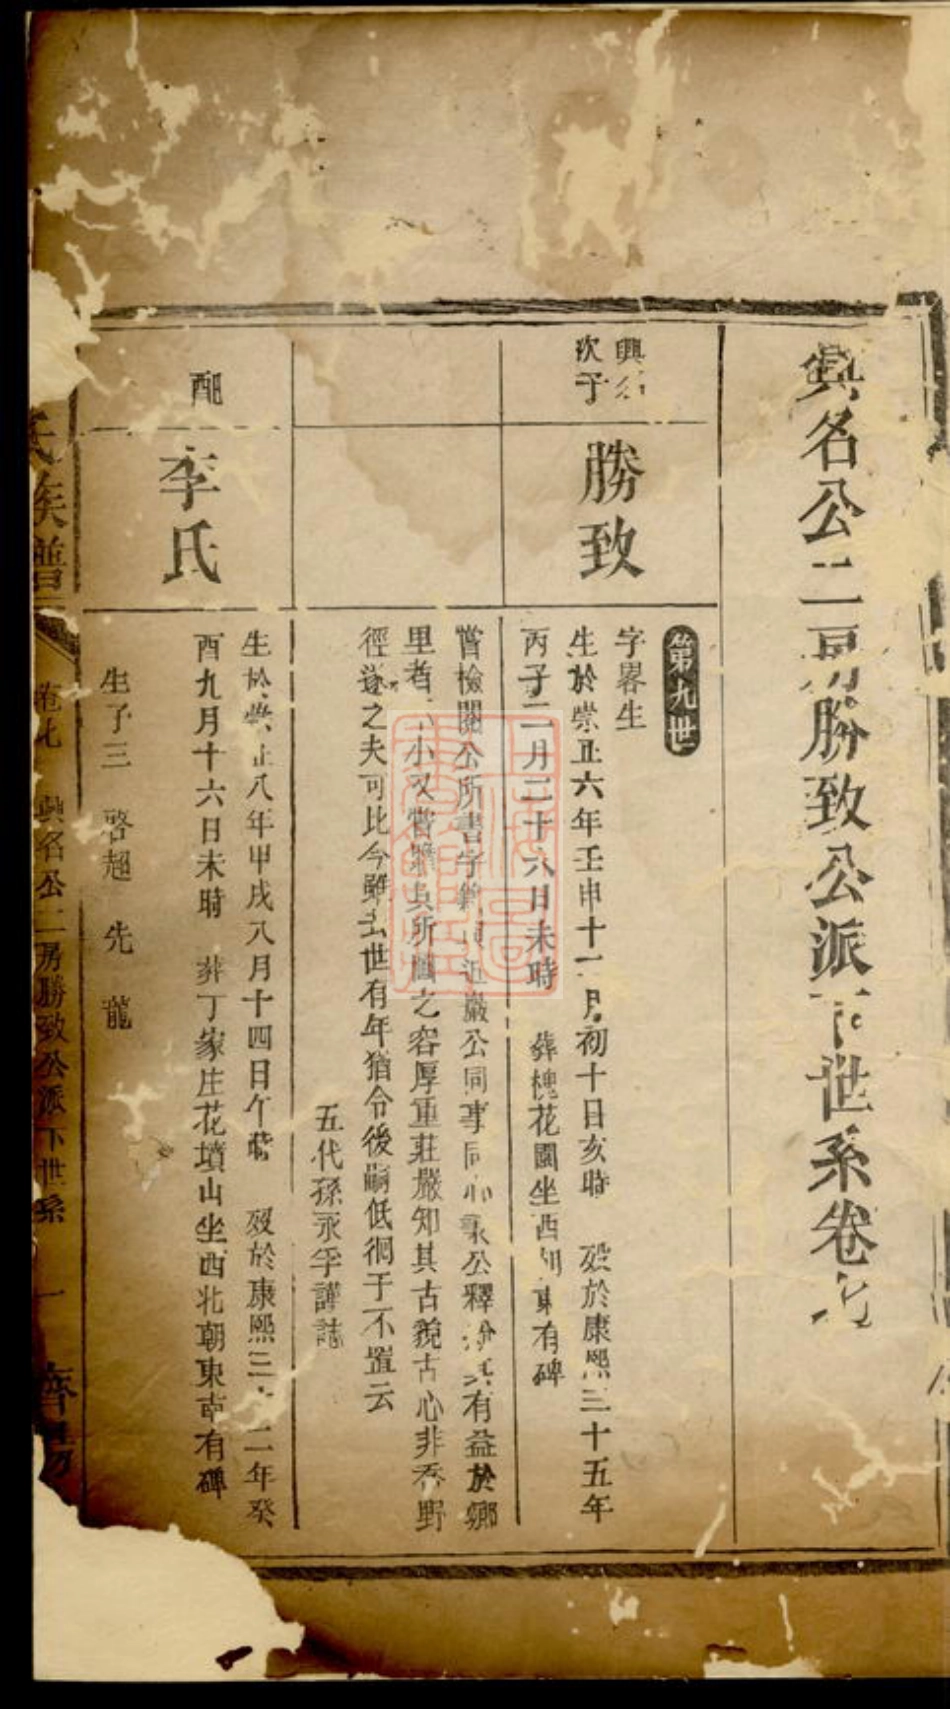 興名公二房勝致公派下世系卷七
第九世
興名
次子
勝致
字畧生
生於崇正六年壬申十一月初十日亥時 殁於康熙三十五年
丙子二月二十六日未時 葬槐花園坐西朝東有碑
嘗檢閱公所書字 巖公同事同 公釋 有益於鄉
里者 小又嘗 吳所 之容厚重莊嚴知其古貌古心非吞野
徑遂之夫可比今雖去世有年猶令後嗣低徊于不置云
五代孫永孚謹誌
配
李氏
生於崇正八年甲戌八月十四日午時 殁於康熙三十二年癸
酉九月十六日未時 葬丁家庄花墳山坐西北朝東南有碑
生子三 啓超 先 龍
氏族譜
卷七 興名公二房勝致公派下世系 一